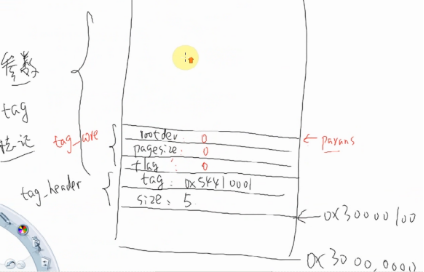 参数
tag
标记
tag_core
tag_header
rootdev: 0
pagesize: 0
flag: 0
tag: 0x54410001
size: 5
params
0x30000100
0x3000,0000